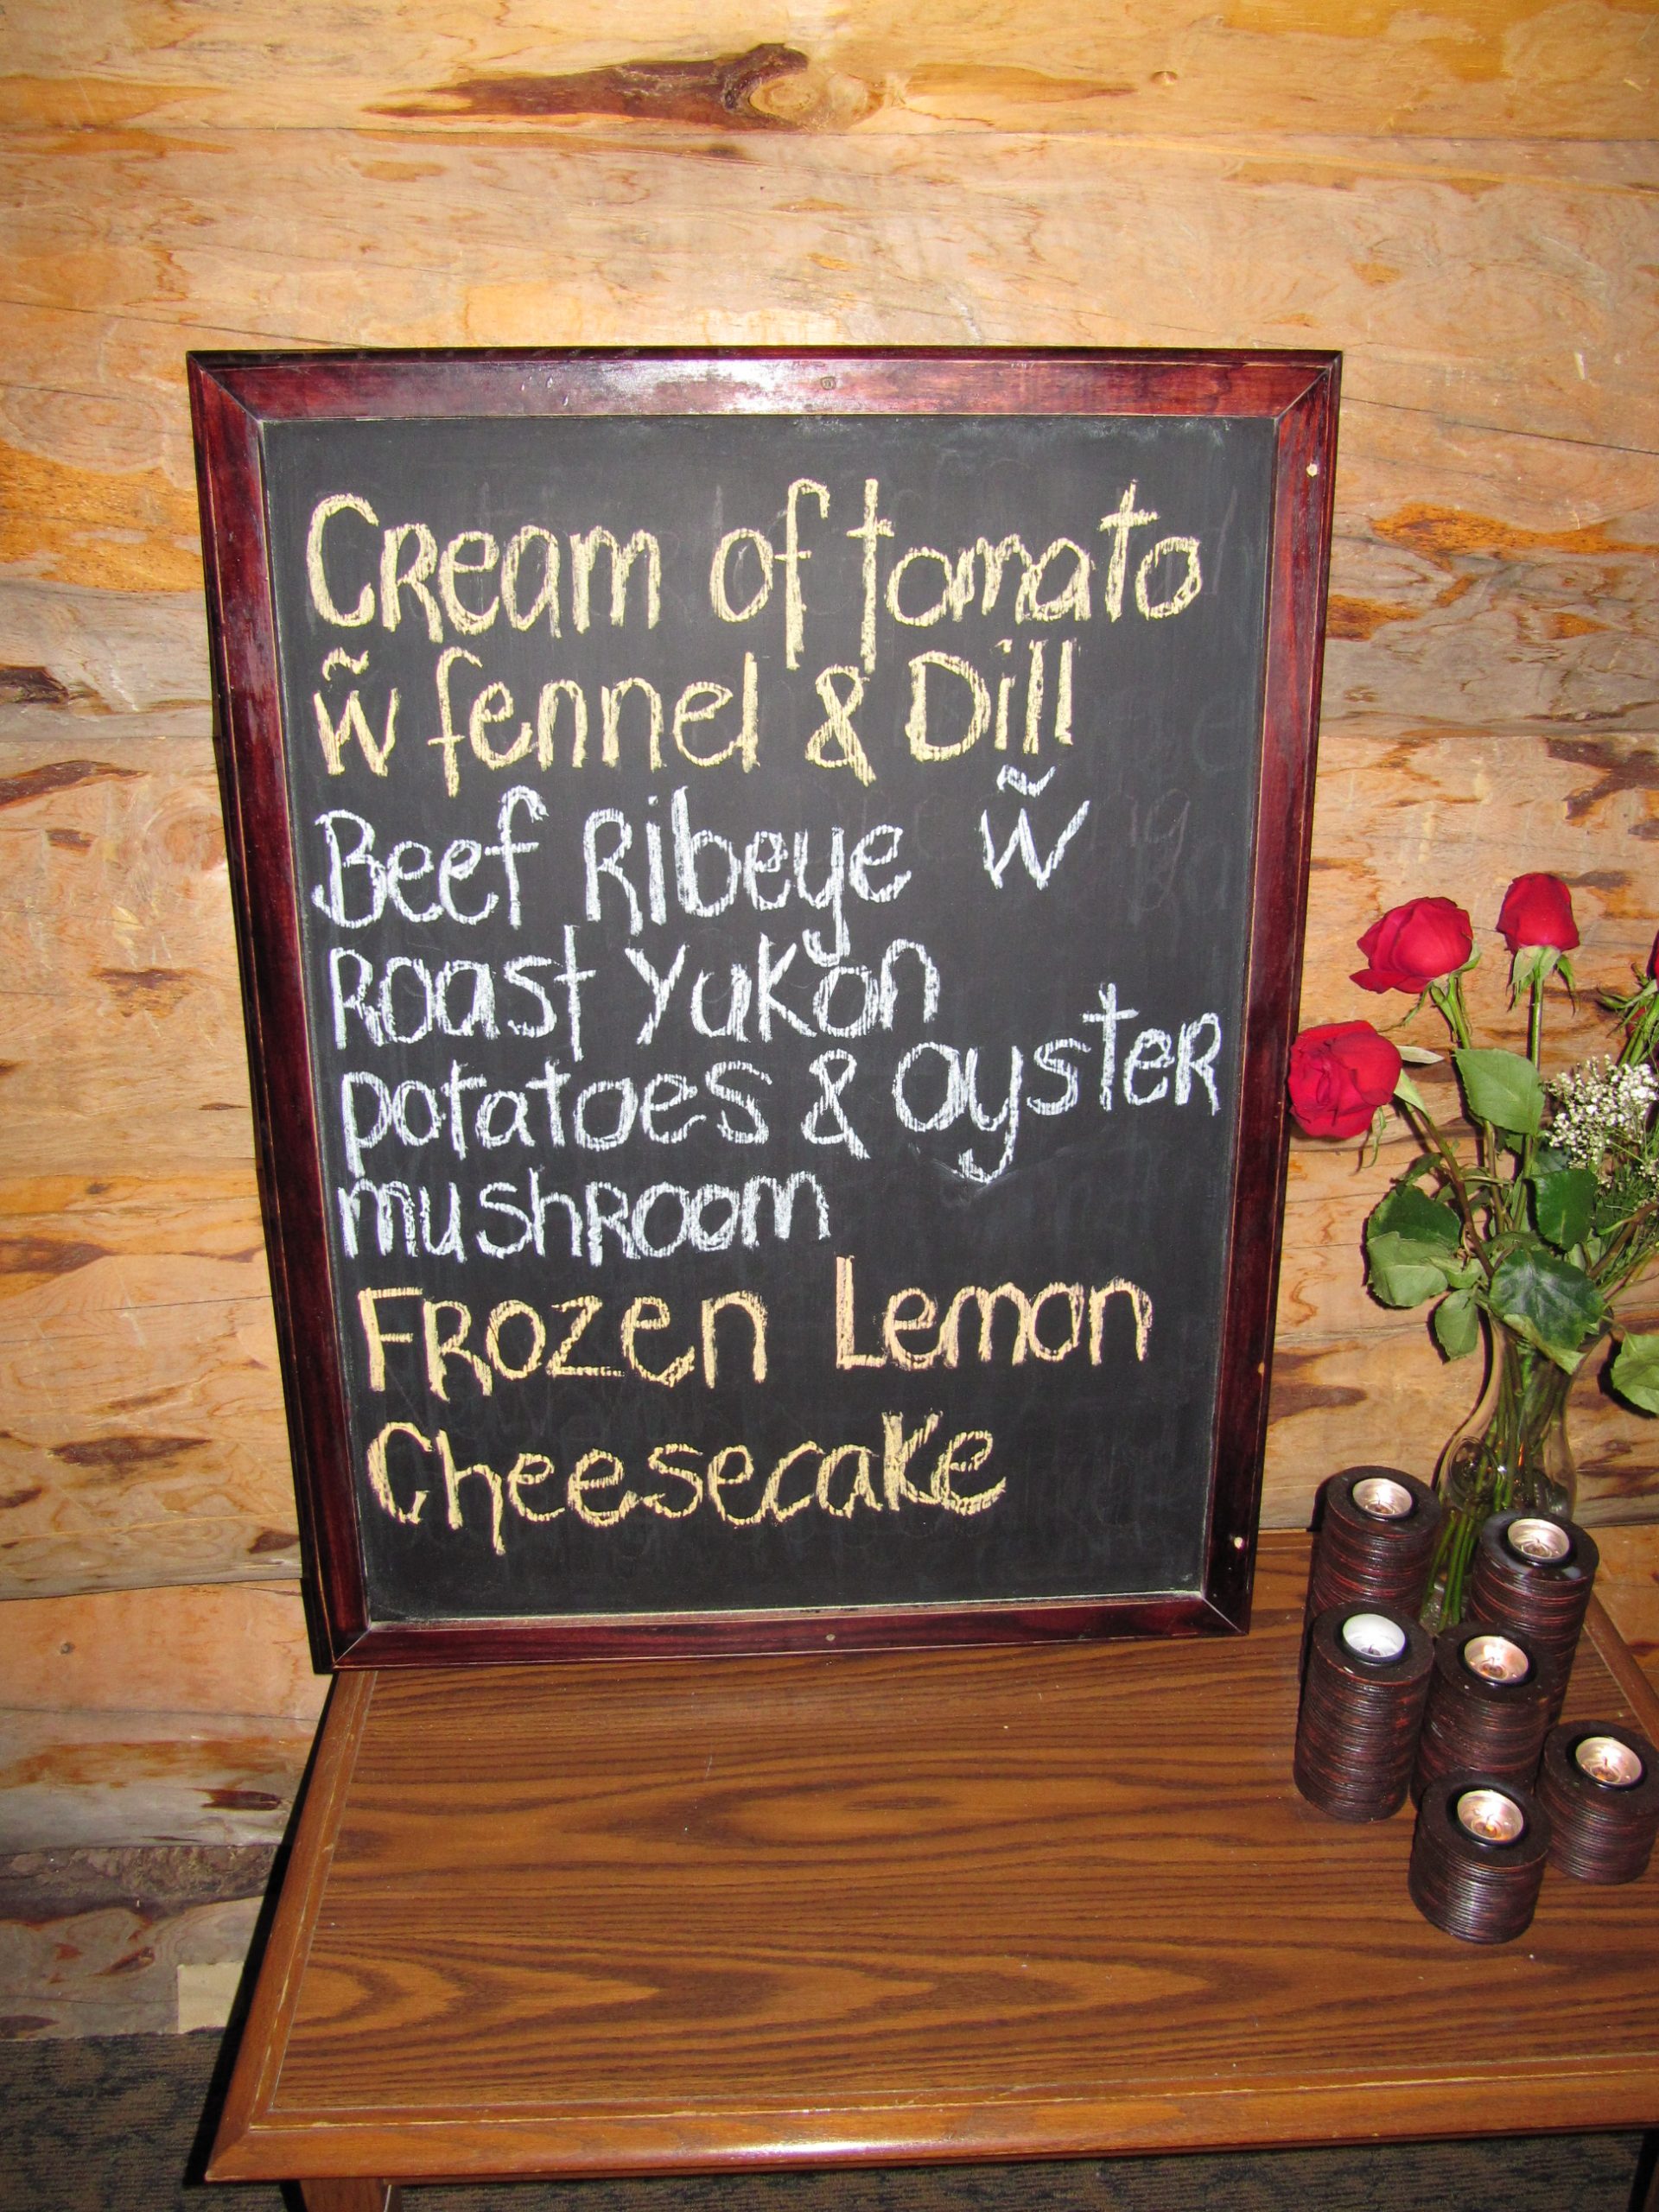 Cream of tomato
w̃ fennel & Dill
Beef Ribeye w̃
Roast Yukon
potatoes & oyster
mushroom
Frozen Lemon
Cheesecake